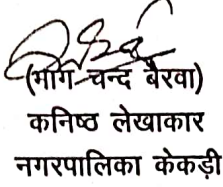 (मांग चन्द बैरवा)
कनिष्ठ लेखाकार
नगरपालिका केकड़ी